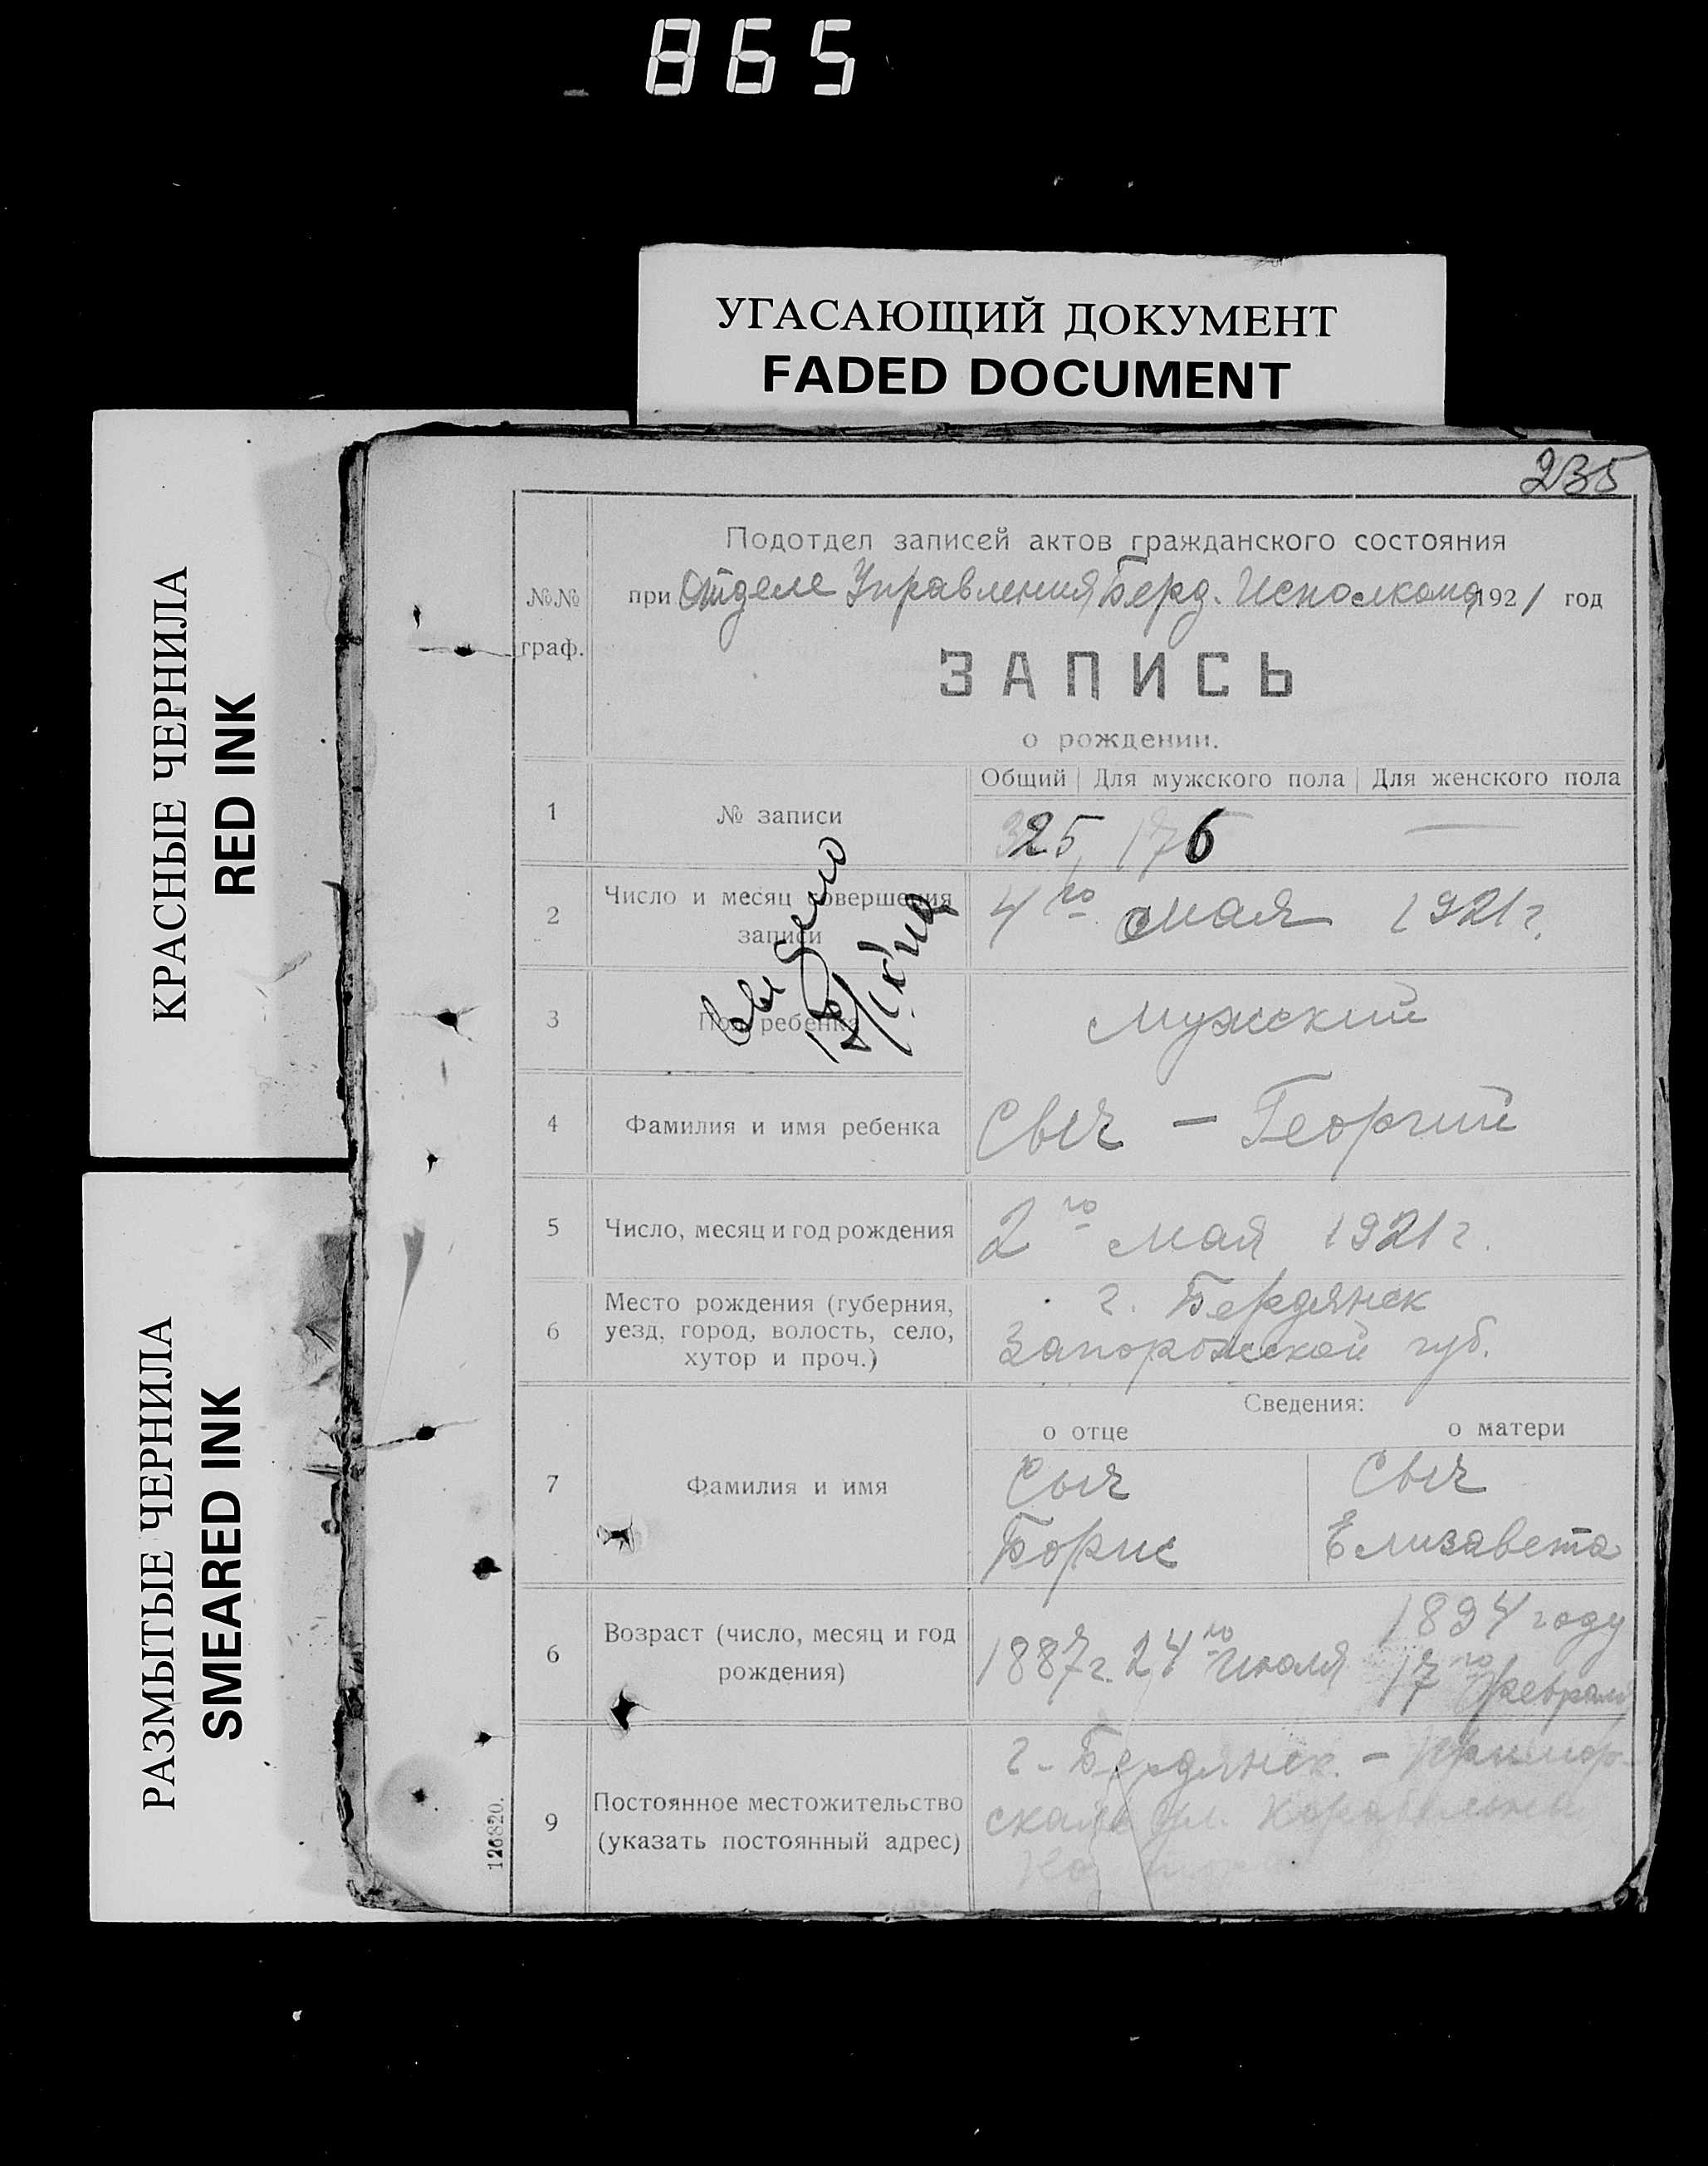 865
УГАСАЮЩИЙ ДОКУМЕНТ
FADED DOCUMENT
КРАСНЫЕ ЧЕРНИЛА
RED INK
РАЗМЫТЫЕ ЧЕРНИЛА
SMEARED INK
235
№№ граф.
Подотдел записей актов гражданского состояния
при Отделе Управления Берд. Исполкома 1921 год
ЗАПИСЬ
о рождении.
Общий | Для мужского пола | Для женского пола
1 № записи 325 176 —
2 Число и месяц совершения записи 4го мая 1921 г.
3 Пол ребенка Мужский
4 Фамилия и имя ребенка Сыч — Георгий
5 Число, месяц и год рождения 2го мая 1921 г.
6 Место рождения (губерния, г. Бердянск
уезд, город, волость, село, Запорожской губ.
хутор и проч.)
Сведения:
о отце о матери
7 Фамилия и имя Сыч Сыч
Борис Елизавета
6 Возраст (число, месяц и год рождения) 1887 г. 24го Июля 1894 году
17го Февраля
9 Постоянное местожительство г. Бердянск. — Примор-
(указать постоянный адрес) ская ул.
126820.